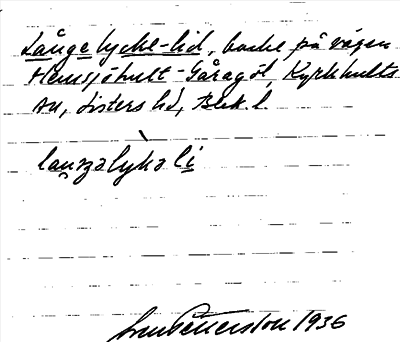 Långelycke-lid, backe på vägen
Hemsjöhult-Gåragöl, Kyrkhults
sn, Listers hd, Blek. l.
laŋgalykali
Pettersson 1936